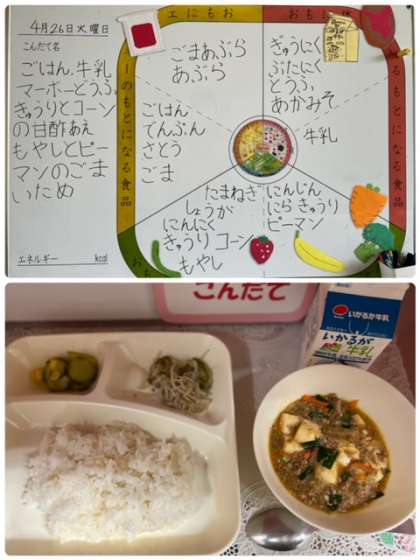 4月26日火曜日
こんだて名
ごはん,牛乳
マーボーどうふ,
きゅうりとコーン
の甘酢あえ
もやしとピー
マンのごま
いため
エネルギー kcal
エにもお
おもに体
ーのもとになる食品
るもとになる食品
ごまあぶら
あぶら
ぎゅうにく
ぶたにく
とうふ
あかみそ
牛乳
ごはん
でんぷん
さとう
ごま
たまねぎ
しょうが
にんにく
きゅうり コーン
もやし
にんじん
にら きゅうり
ピーマン
おも
こんだて
いかるが牛乳
いかるが
牛乳